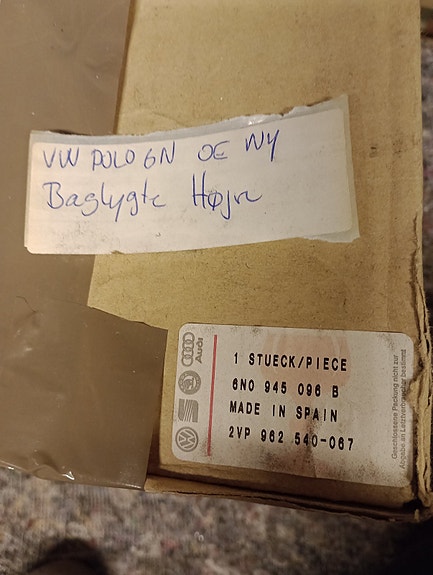 VW POLO 6N OE NY
Baglygte Højre
Audi
1 STUECK/PIECE
6N0 945 096 B
MADE IN SPAIN
2VP 962 540-067
Geschlossene Packung nicht zur
Abgabe an Letztverbraucher bestimmt